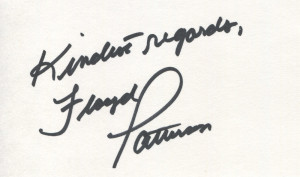 Kindest regards,
Floyd
Patterson